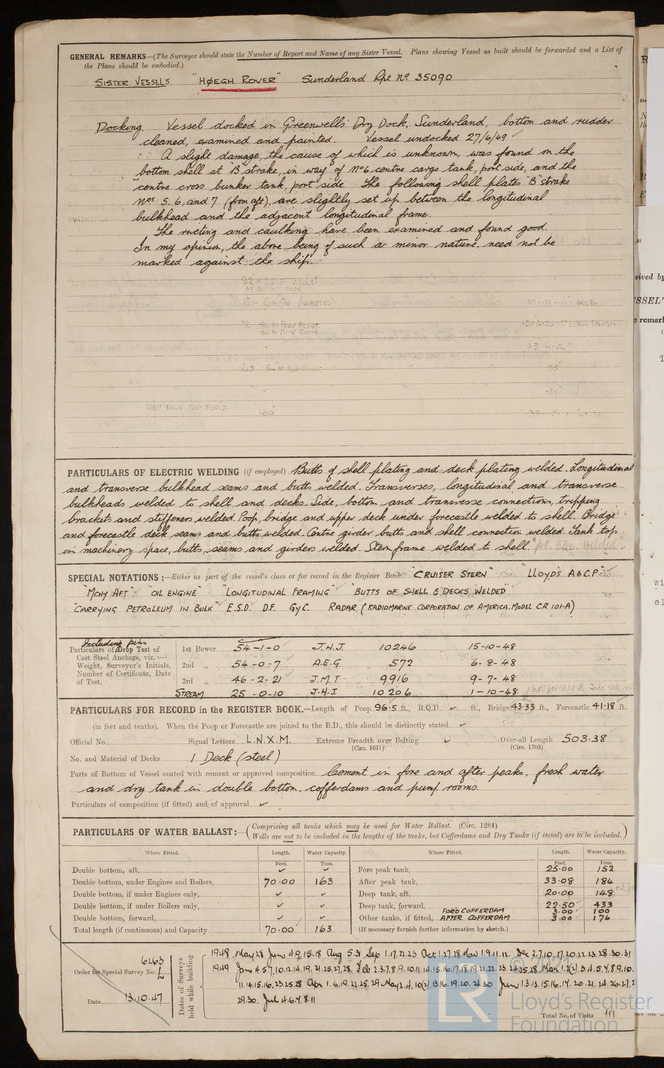 GENERAL REMARKS—(The Surveyor should state the Number of Report and Name of any Sister Vessel. Plans showing Vessel as built should be forwarded and a List of
the Plans should be embodied.)
SISTER VESSELS "HØEGH ROVER" Sunderland Rpt No 35090
Docking Vessel docked in Greenwells Dry Dock, Sunderland, bottom and rudder
cleaned, examined and painted. Vessel undocked 27/6/49
A slight damage, the cause of which is unknown, was found on the
bottom shell at B strake, in way of No 6 centre cargo tank, port side, and the
centre cross bunker tank, port side. The following shell plates B strake
Nos. 5, 6, and 7 (from aft), are slightly set up between the longitudinal
bulkhead and the adjacent longitudinal frame.
The riveting and caulking have been examined and found good.
In my opinion, the above being of such a minor nature, need not be
marked against the ship.
PARTICULARS OF ELECTRIC WELDING (if employed) Butts of shell plating and deck plating welded. Longitudinal
and transverse bulkhead seams and butts welded. Transverses, longitudinal and transverse
bulkheads welded to shell and decks. Side, bottom and transverse connections, tripping
brackets and stiffeners welded. Poop, bridge and upper deck under forecastle welded to shell. Bridge
and forecastle deck seams and butts welded. Centre girder butts and shell connection welded. Tank top
in machinery space, butts, seams and girders welded. Stern frame welded to shell.
SPECIAL NOTATIONS:—Either as part of the vessel's class or for record in the Register Book "CRUISER STERN" "LLOYD'S A&CP"
"MCHY AFT" "OIL ENGINE" LONGITUDINAL FRAMING" BUTTS OF SHELL & DECKS WELDED"
"CARRYING PETROLEUM IN BULK" E.S.D. DF. GyC. RADAR (RADIOMARINE CORPORATION OF AMERICA. MODEL CR 101-A)
Including pins
Particulars of Drop Test of
Cast Steel Anchors, viz.:—
Weight, Surveyor's Initials,
Number of Certificate, Date
of Test.
1st Bower 54-1-0 J.H.J. 10246 15-10-48
2nd " 54-0-7 A.E.G. 572 6-8-48
3rd " 46-2-21 J.M.T 9916 9-7-48
STREAM 25-0-10 J.H.J 10206 1-10-48
PARTICULARS FOR RECORD in the REGISTER BOOK.—Length of Poop 96.5 ft., R.Q.D. ✓ ft., Bridge 43.33 ft., Forecastle 41.18 ft.
(in feet and tenths). When the Poop or Forecastle are joined to the B.D., this should be distinctly stated ✓
Official No. Signal Letters L.N.X.M. Extreme Breadth over Belting ✓ Over-all Length 503.38
(Circ. 1611) (Circ. 1703)
No. and Material of Decks 1 Deck (steel)
Parts of Bottom of Vessel coated with cement or approved composition Cement in fore and after peaks, fresh water
and dry tank in double bottom, cofferdams and pump rooms.
Particulars of composition (if fitted) and of approval ✓
PARTICULARS OF WATER BALLAST:—(Comprising all tanks which may be used for Water Ballast. (Circ. 1284)
Wells are not to be included in the lengths of the tanks, but Cofferdams and Dry Tanks (if tested) are to be included.)
Where Fitted. Length. Water Capacity. Where Fitted. Length. Water Capacity.
Feet. Tons. Feet. Tons.
Double bottom, aft, ✓ ✓ Fore peak tank, 25.00 152
Double bottom, under Engines and Boilers, 70.00 163 After peak tank, 33.08 184
Double bottom, if under Engines only, ✓ ✓ Deep tank, aft, 20.00 148
Double bottom, if under Boilers only, ✓ ✓ Deep tank, forward, 22.50 433
Double bottom, forward, ✓ ✓ Other tanks, if fitted, FORD COFFERDAM 3.00 100
AFTER COFFERDAM 3.00 176
Total length (if continuous) and Capacity 70.00 163 (If necessary furnish further information by sketch.)
Order for Special Survey No. 6463
Date 13.10.47
Dates of Surveys held while building
Total No. of Visits 111
Lloyd's Register
Foundation